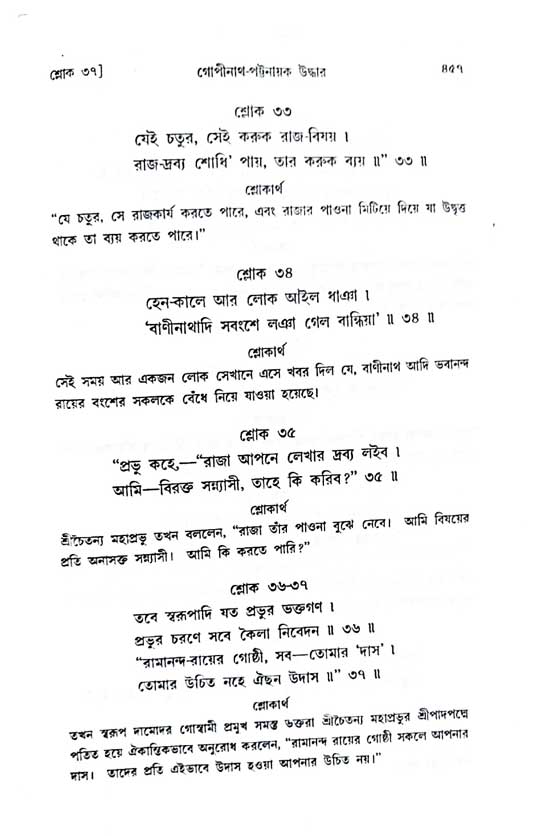 শ্লোক ৩৭]
গোপীনাথ-পট্টনায়ক উদ্ধার
৪৫৭
শ্লোক ৩৩
যেই চতুর, সেই করুক রাজ-বিষয় ।
রাজ-দ্রব্য শোধি' পায়, তার করুক ব্যয় ॥" ৩৩ ॥
শ্লোকার্থ
"যে চতুর, সে রাজকার্য করতে পারে, এবং রাজার পাওনা মিটিয়ে দিয়ে যা উদ্বৃত্ত
থাকে তা ব্যয় করতে পারে।"
শ্লোক ৩৪
হেন-কালে আর লোক আইল ধাঞা ।
'বাণীনাথাদি সবংশে লঞা গেল বান্ধিয়া' ॥ ৩৪ ॥
শ্লোকার্থ
সেই সময় আর একজন লোক সেখানে এসে খবর দিল যে, বাণীনাথ আদি ভবানন্দ
রায়ের বংশের সকলকে বেঁধে নিয়ে যাওয়া হয়েছে।
শ্লোক ৩৫
"প্রভু কহে,—"রাজা আপনে লেখার দ্রব্য লইব ।
আমি—বিরক্ত সন্ন্যাসী, তাহে কি করিব?" ৩৫ ॥
শ্লোকার্থ
শ্রীচৈতন্য মহাপ্রভু তখন বললেন, "রাজা তাঁর পাওনা বুঝে নেবে। আমি বিষয়ের
প্রতি অনাসক্ত সন্ন্যাসী। আমি কি করতে পারি?"
শ্লোক ৩৬-৩৭
তবে স্বরূপাদি যত প্রভুর ভক্তগণ ।
প্রভুর চরণে সবে কৈলা নিবেদন ॥ ৩৬ ॥
"রামানন্দ-রায়ের গোষ্ঠী, সব—তোমার 'দাস' ।
তোমার উচিত নহে ঐছন উদাস ॥" ৩৭ ॥
শ্লোকার্থ
তখন স্বরূপ দামোদর গোস্বামী প্রমুখ সমস্ত ভক্তরা শ্রীচৈতন্য মহাপ্রভুর শ্রীপাদপদ্মে
পতিত হয়ে ঐকান্তিকভাবে অনুরোধ করলেন, "রামানন্দ রায়ের গোষ্ঠী সকলে আপনার
দাস। তাদের প্রতি এইভাবে উদাস হওয়া আপনার উচিত নয়।"